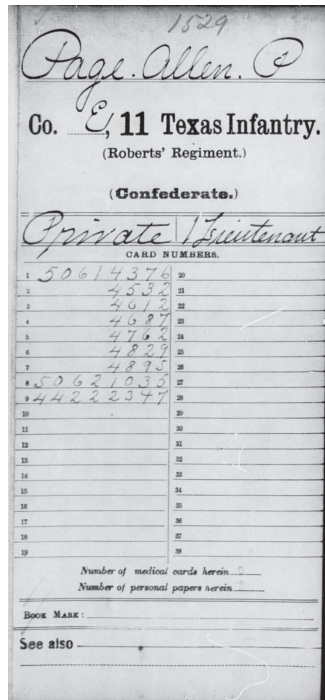 1529
Page. Allen. P
Co. E, 11 Texas Infantry.
(Roberts' Regiment.)
(Confederate.)
Private | 1 Lieutenant
CARD NUMBERS.
1 50614376 20
2 4532 21
3 4612 22
4 4687 23
5 4762 24
6 4829 25
7 4895 26
8 50621035 27
9 44222347 28
10 29
11 30
12 31
13 32
14 33
15 34
16 35
17 36
18 37
19 38
Number of medical cards herein
Number of personal papers herein
BOOK MARK:
See also